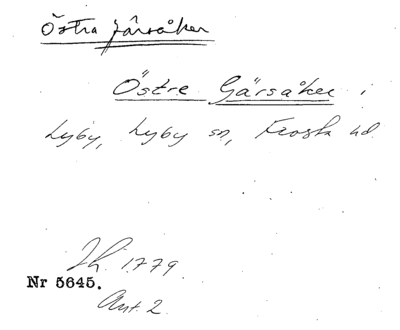 Östra Järsåker
Östre Gärsåker i
Lyby, Lyby sn, Frosta hd.
Sk. 1779.
Nr 5645.
Akt. 2.